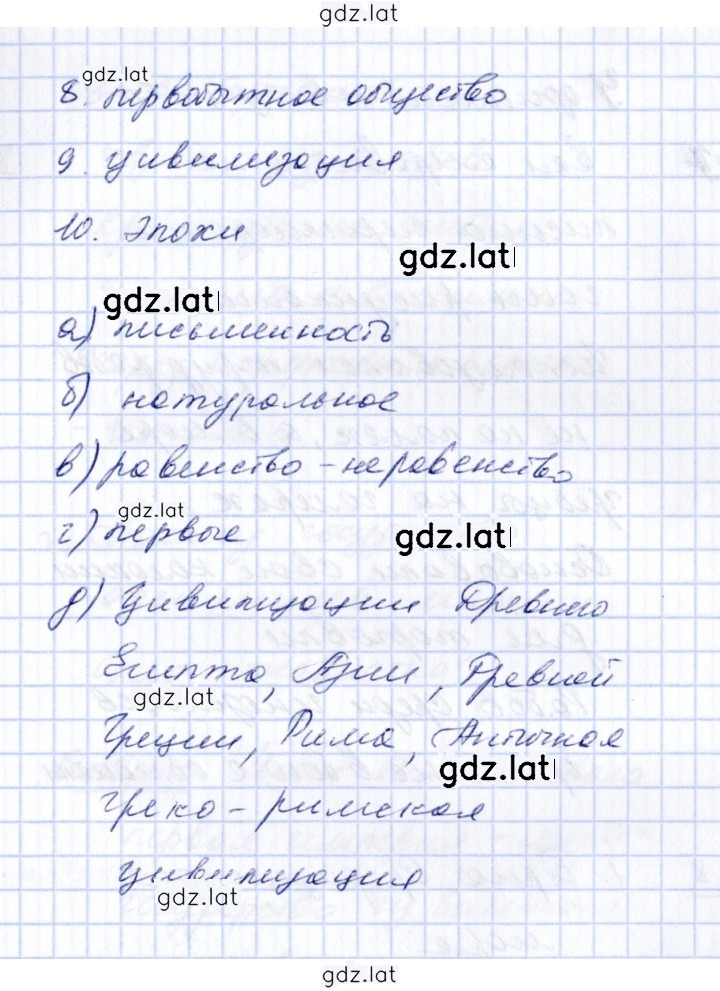 gdz.lat
gdz.lat
8. первобытное общество
9. цивилизация
10. Эпохи
gdz.lat
gdz.lat
а) письменность
б) натуральное
в) равенство - неравенство
gdz.lat
г) первые
gdz.lat
д) Цивилизации Древнего
Египта, Азии, Древней
gdz.lat
Греции, Рима, Античная
gdz.lat
греко - римская
цивилизация
gdz.lat
gdz.lat